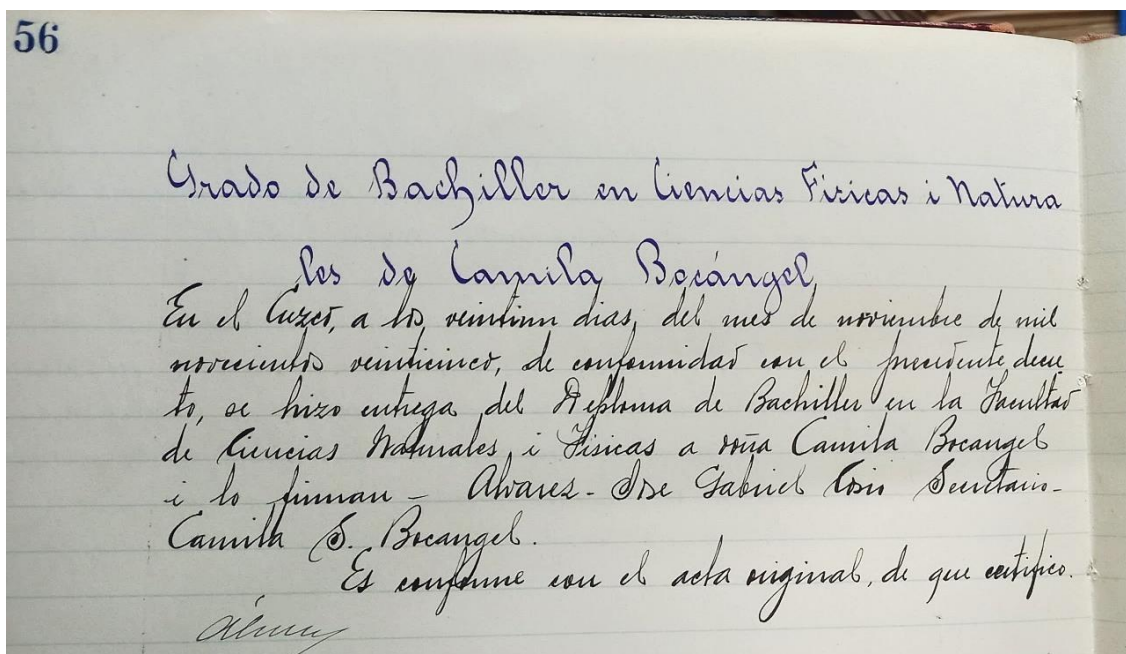 56
Grado de Bachiller en Ciencias Fisicas i Natura
les de Camila Bocángel
En el Cuzco, a los veintiun dias, del mes de noviembre de mil
novecientos veinticinco, de conformidad con el precedente decre
to, se hizo entrega del Diploma de Bachiller en la Facultad
de Ciencias Naturales i Fisicas a doña Camila Bocangel
i lo firman – Alvarez - Jose Gabriel Cosio Secretario -
Camila S. Bocangel.
Es conforme con el acta original, de que certifico.